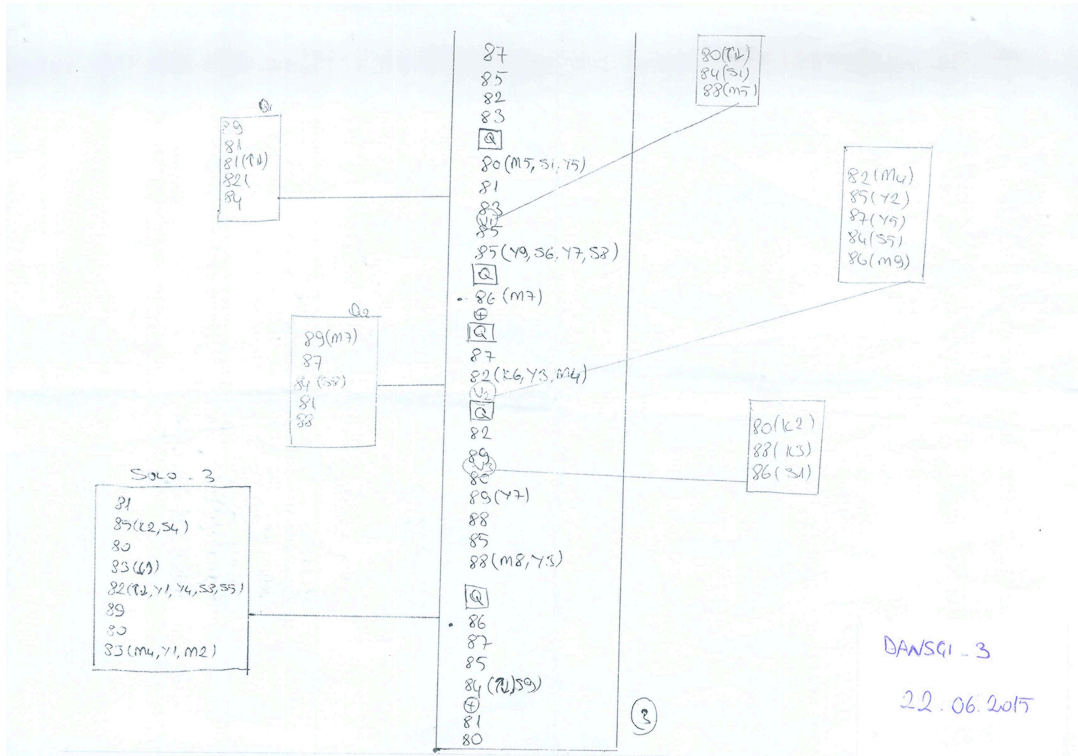 87
85
82
83
Q
80(M5,S1,Y5)
81
83
V1
85
85(Y9,S6,Y7,S8)
Q
86(M7)
+
Q
87
82(K6,Y3,M4)
V2
Q
82
89
V3
86
89(Y7)
88
85
88(M8,Y3)
Q
86
87
85
84
S9)
+
81
80
Q1
89
81
81
82(
84
Q2
89(M7)
87
84(S8)
81
88
SOLO - 3
81
89(K2,S4)
80
83
Y1,Y4,S3,S5)
89
80
83(M4,Y1,M2)
80
84(S1)
88(M5)
82(M4)
85(Y2)
87(Y5)
84(S5)
86(M9)
80(K2)
88(K3)
86(S1)
3
DANSGI - 3
22.06.2015